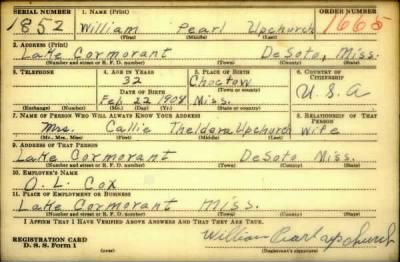 SERIAL NUMBER 1. NAME (Print) ORDER NUMBER
1852 William Pearl Upchurch 1665
(First) (Middle) (Last)
2. ADDRESS (Print)
Lake Cormorant DeSoto, Miss.
(Number and street or R. F. D. number) (Town) (County) (State)
3. TELEPHONE 4. AGE IN YEARS 5. PLACE OF BIRTH 6. COUNTRY OF CITIZENSHIP
32 Choctow
DATE OF BIRTH U. S. A
Feb. 22 1908 Miss.
(Exchange) (Number) (Mo.) (Day) (Yr.) (State or country)
7. NAME OF PERSON WHO WILL ALWAYS KNOW YOUR ADDRESS 8. RELATIONSHIP OF THAT PERSON
Mrs. Callie Theldora Upchurch wife
(Mr., Mrs., Miss) (First) (Middle) (Last)
9. ADDRESS OF THAT PERSON
Lake Cormorant DeSoto Miss.
(Number and street or R. F. D. number) (Town) (County) (State)
10. EMPLOYER'S NAME
O. L. Cox
11. PLACE OF EMPLOYMENT OR BUSINESS
Lake Cormorant Miss.
(Number and street or R. F. D. number) (Town) (County) (State)
I AFFIRM THAT I HAVE VERIFIED ABOVE ANSWERS AND THAT THEY ARE TRUE.
REGISTRATION CARD
D. S. S. Form 1 William Pearl Upchurch
(Registrant's signature)